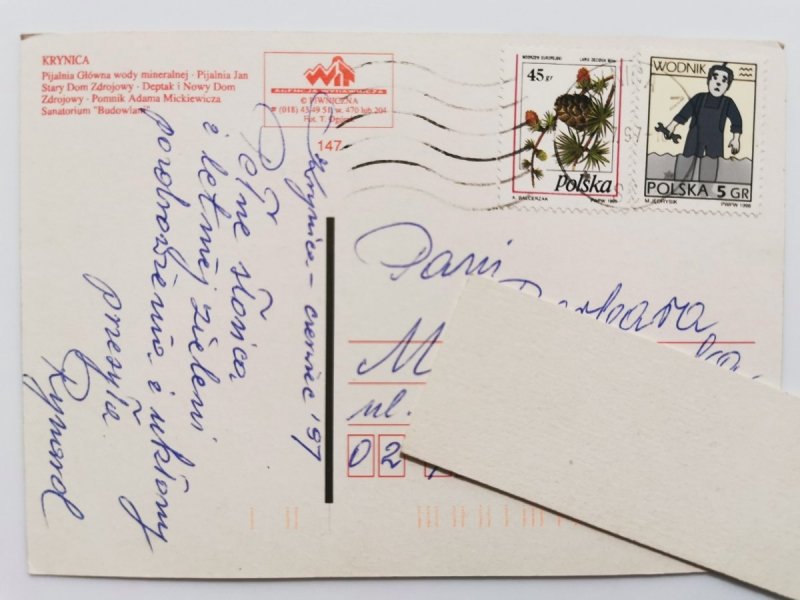 KRYNICA
Pijalnia Główna wody mineralnej · Pijalnia Jan
Stary Dom Zdrojowy · Deptak i Nowy Dom
Zdrojowy · Pomnik Adama Mickiewicza
Sanatorium "Budowlani"
AGENCJA WYDAWNICZA
© PIWNICZNA
(018) 43/49 51, w. 470 lub 204
Fot. T. Ogórek
147
MODRZEW EUROPEJSKI
45 gr
polska
A. BALCERZAK
PWPW 1995
WODNIK
POLSKA 5 GR
M. JĘDRYSIK
PWPW 1996
Krynica - czerwiec '97
Pełne słońca
i letniej zieleni
pozdrowienia i ukłony
przesyła
Ryszard
Pani
Barbara
M
ul.
02